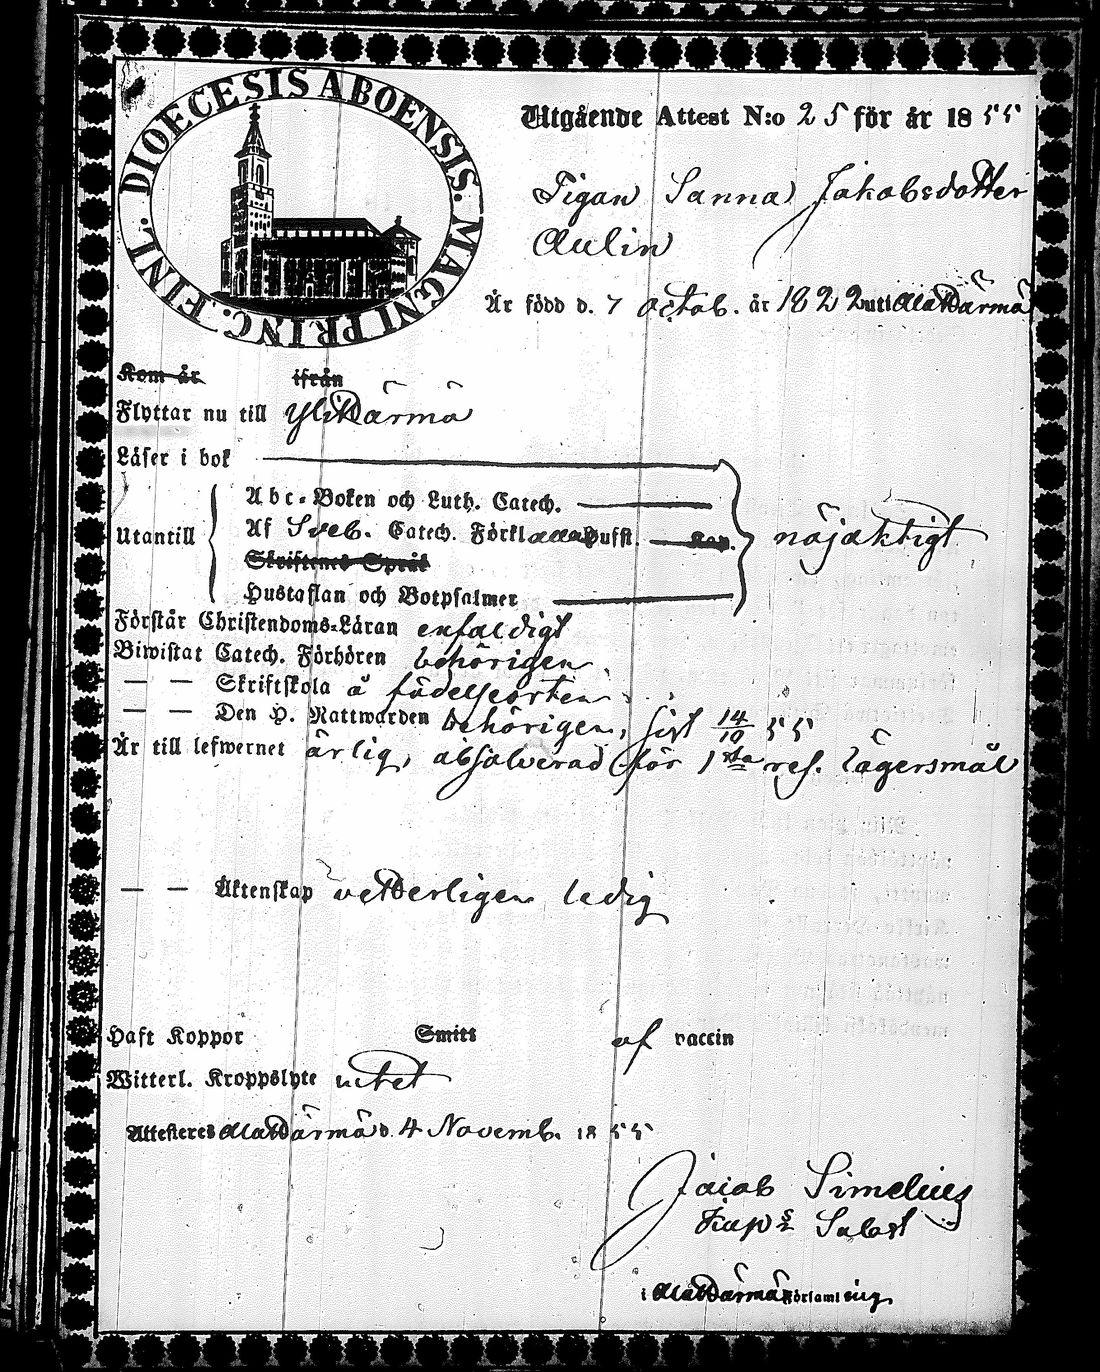 DIOECESIS ABOENSIS. MAGNI PRINC. FINL.
Utgående Attest N:o 25 för år 1855
Tigan Sanna Jakobsdotter
Aulin
Är född d. 7 octob. år 1822 uti Alahärmä
Kom år ifrån
Flyttar nu till Ylihärmä
Läser i bok
Abc-Boken och Luth. Catech.
Utantill Af Sveb. Catech. Förkl. Hufst. Kap. nöjaktigt
Skriftenes Språk
Hustaflan och Botpsalmer
Förstår Christendoms-Läran enfaldigt
Biwistat Catech. Förhören behörigen.
— — Skriftskola å födelseorten
— — Den H. Nattwarden behörigen, sist 14/10 55
Är till lefwernet ärlig, absolverad för 1sta res. lägersmål
— — Äktenskap vetterligen ledig
Haft Koppor Smitt af vaccin
Witterl. Kroppslyte intet
Attesteras Alahärmä d. 4 Novemb. 1855
Jacob Simelius
Kap:s Subst
i Alahärmä Församling